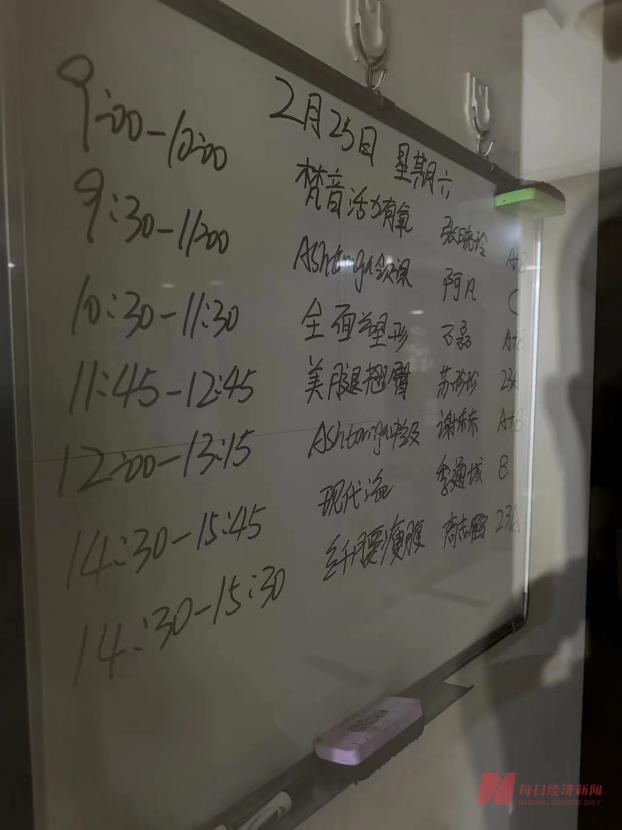 2月25日 星期六
9:00-10:00 梵音活力有氧 张晓玲
9:30-11:00 Ashtanga 阿凡 C
10:30-11:30 全面塑形 石磊 A+B
11:45-12:45 美腿翘臀 苏 23
12:00-13:15 Ashtanga 谢 A+B
14:30-15:45 现代 李 城 B
14:30-15:30 纤腰瘦腹 高志 23
每日经济新闻
NATIONAL BUSINESS DAILY